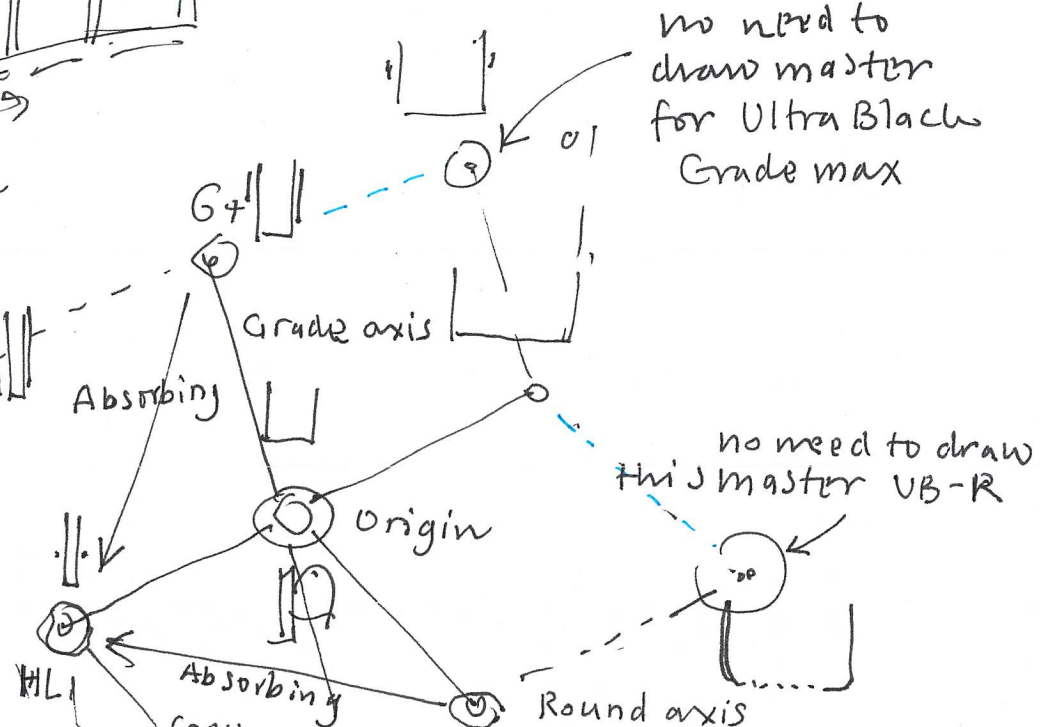 no need to
draw master
for Ultra Black
Grade max
G+
Grade axis
Absorbing
no need to draw
this master UB-R
Origin
HL1
Absorbing
Round axis